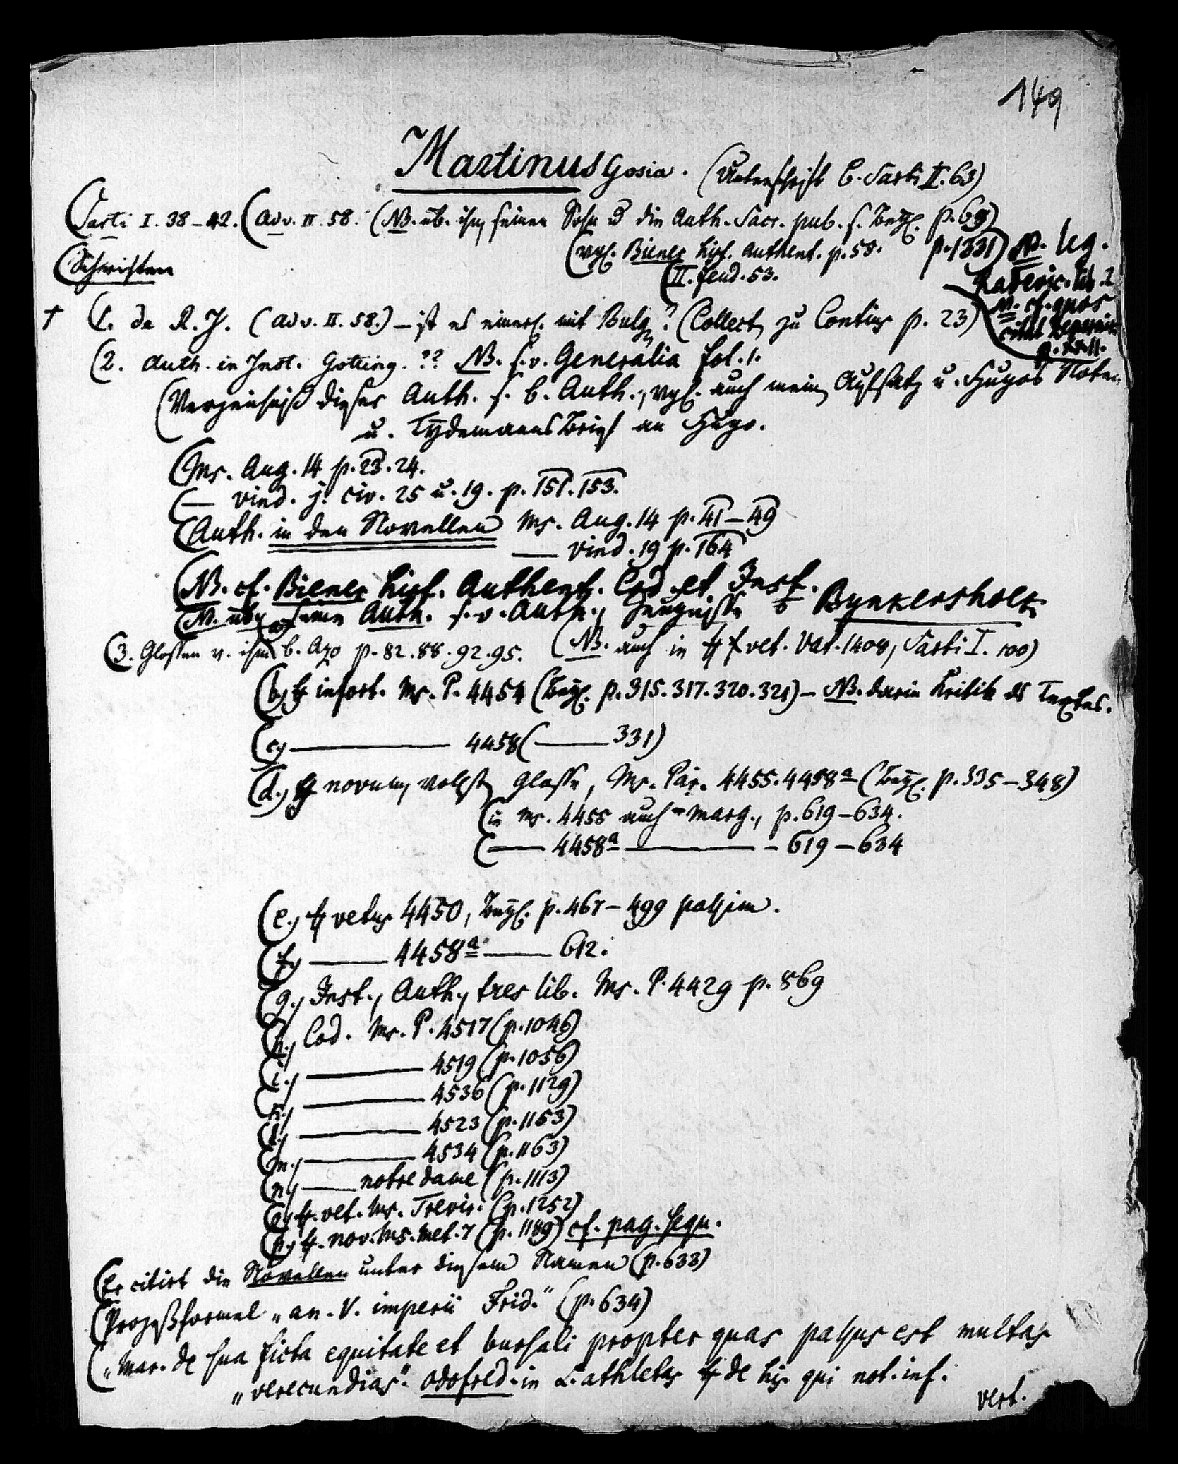 149
Martinus Gosia. (Unterschrift b. Sarti II. 63)
(Sarti I. 38–42. (Adv. II. 58. (NB. üb. ihn, seinen Sohn die Auth. Sacr. pub. s. p. 69)
(vgl. Biener hist. authent. p. 58. p. 1331)
(Schriften
(II. feud. 53.
† (1. de R. J. (Adv. II. 58.) – ist es einerl. mit Bulg.? (Collect. zu Contius p. 23)
(2. Auth. in Inst. Gotting. ?? NB. s. v. Generalia fol. 1.
(Verzeichniß dieser Auth. s. b. Auth., vgl. auch mein Aufsatz u. Hugos Noten
u. Tydemanns Brief an Hugo.
(Ms. Aug. 14 p. 23. 24.
(— vind. j. civ. 25 u. 19. p. 151. 153.
(Auth. in den Novellen Ms. Aug. 14 p. 41–49
— vind. 19 p. 164
(NB. cf. Biener hist. Authent. Cod. et Inst.
(NB. üb. seine Auth. s. v. Auth., Zeugnisse b Bynkershoek
(3. Glossen v. ihm b. Azo p. 82. 88. 92. 95. (NB. auch in ff vet. Vat. 1408, Sarti I. 100)
(b, ff infort. Ms. P. 4454 (p. 315. 317. 320. 321) – NB. darin Kritik des Textes.
(c, ——— 4458 (—— 331)
(d, ff novum, vollst. Glosse, Ms. Par. 4455. 4458ª (p. 335–348)
(in ms. 4455 auch marg., p. 619–634.
(—— 4458ª ——— – 619–634
(e., ff vetus 4450, p. 467–499 passim.
(f, —— 4458ª —— 612.
(g., Inst., Auth., tres lib. Ms. P. 4429 p. 869
(h., Cod. Ms. P. 4517 (p. 1046)
(i., ——— 4519 (p. 1056)
(k., ——— 4536 (p. 1129)
(l, ——— 4523 (p. 1153)
(m., ——— 4534 (p. 1163)
(n, —— notre dame (p. 1113)
(o, ff. vet. Ms. Trevir. (p. 1252)
(p, ff. nov. Ms. Met. 7 (p. 1189) cf. pag. sequ.
(Er citirt die Novellen unter diesem Namen (p. 633)
(Prozeßformel „an. V. imperii Frid.“ (p. 634)
(„Mar. de sua ficta equitate et bursali propter quas passus est multas
„verecundias“. Odofred. in L. athletas ff de his qui not. inf.
vert.